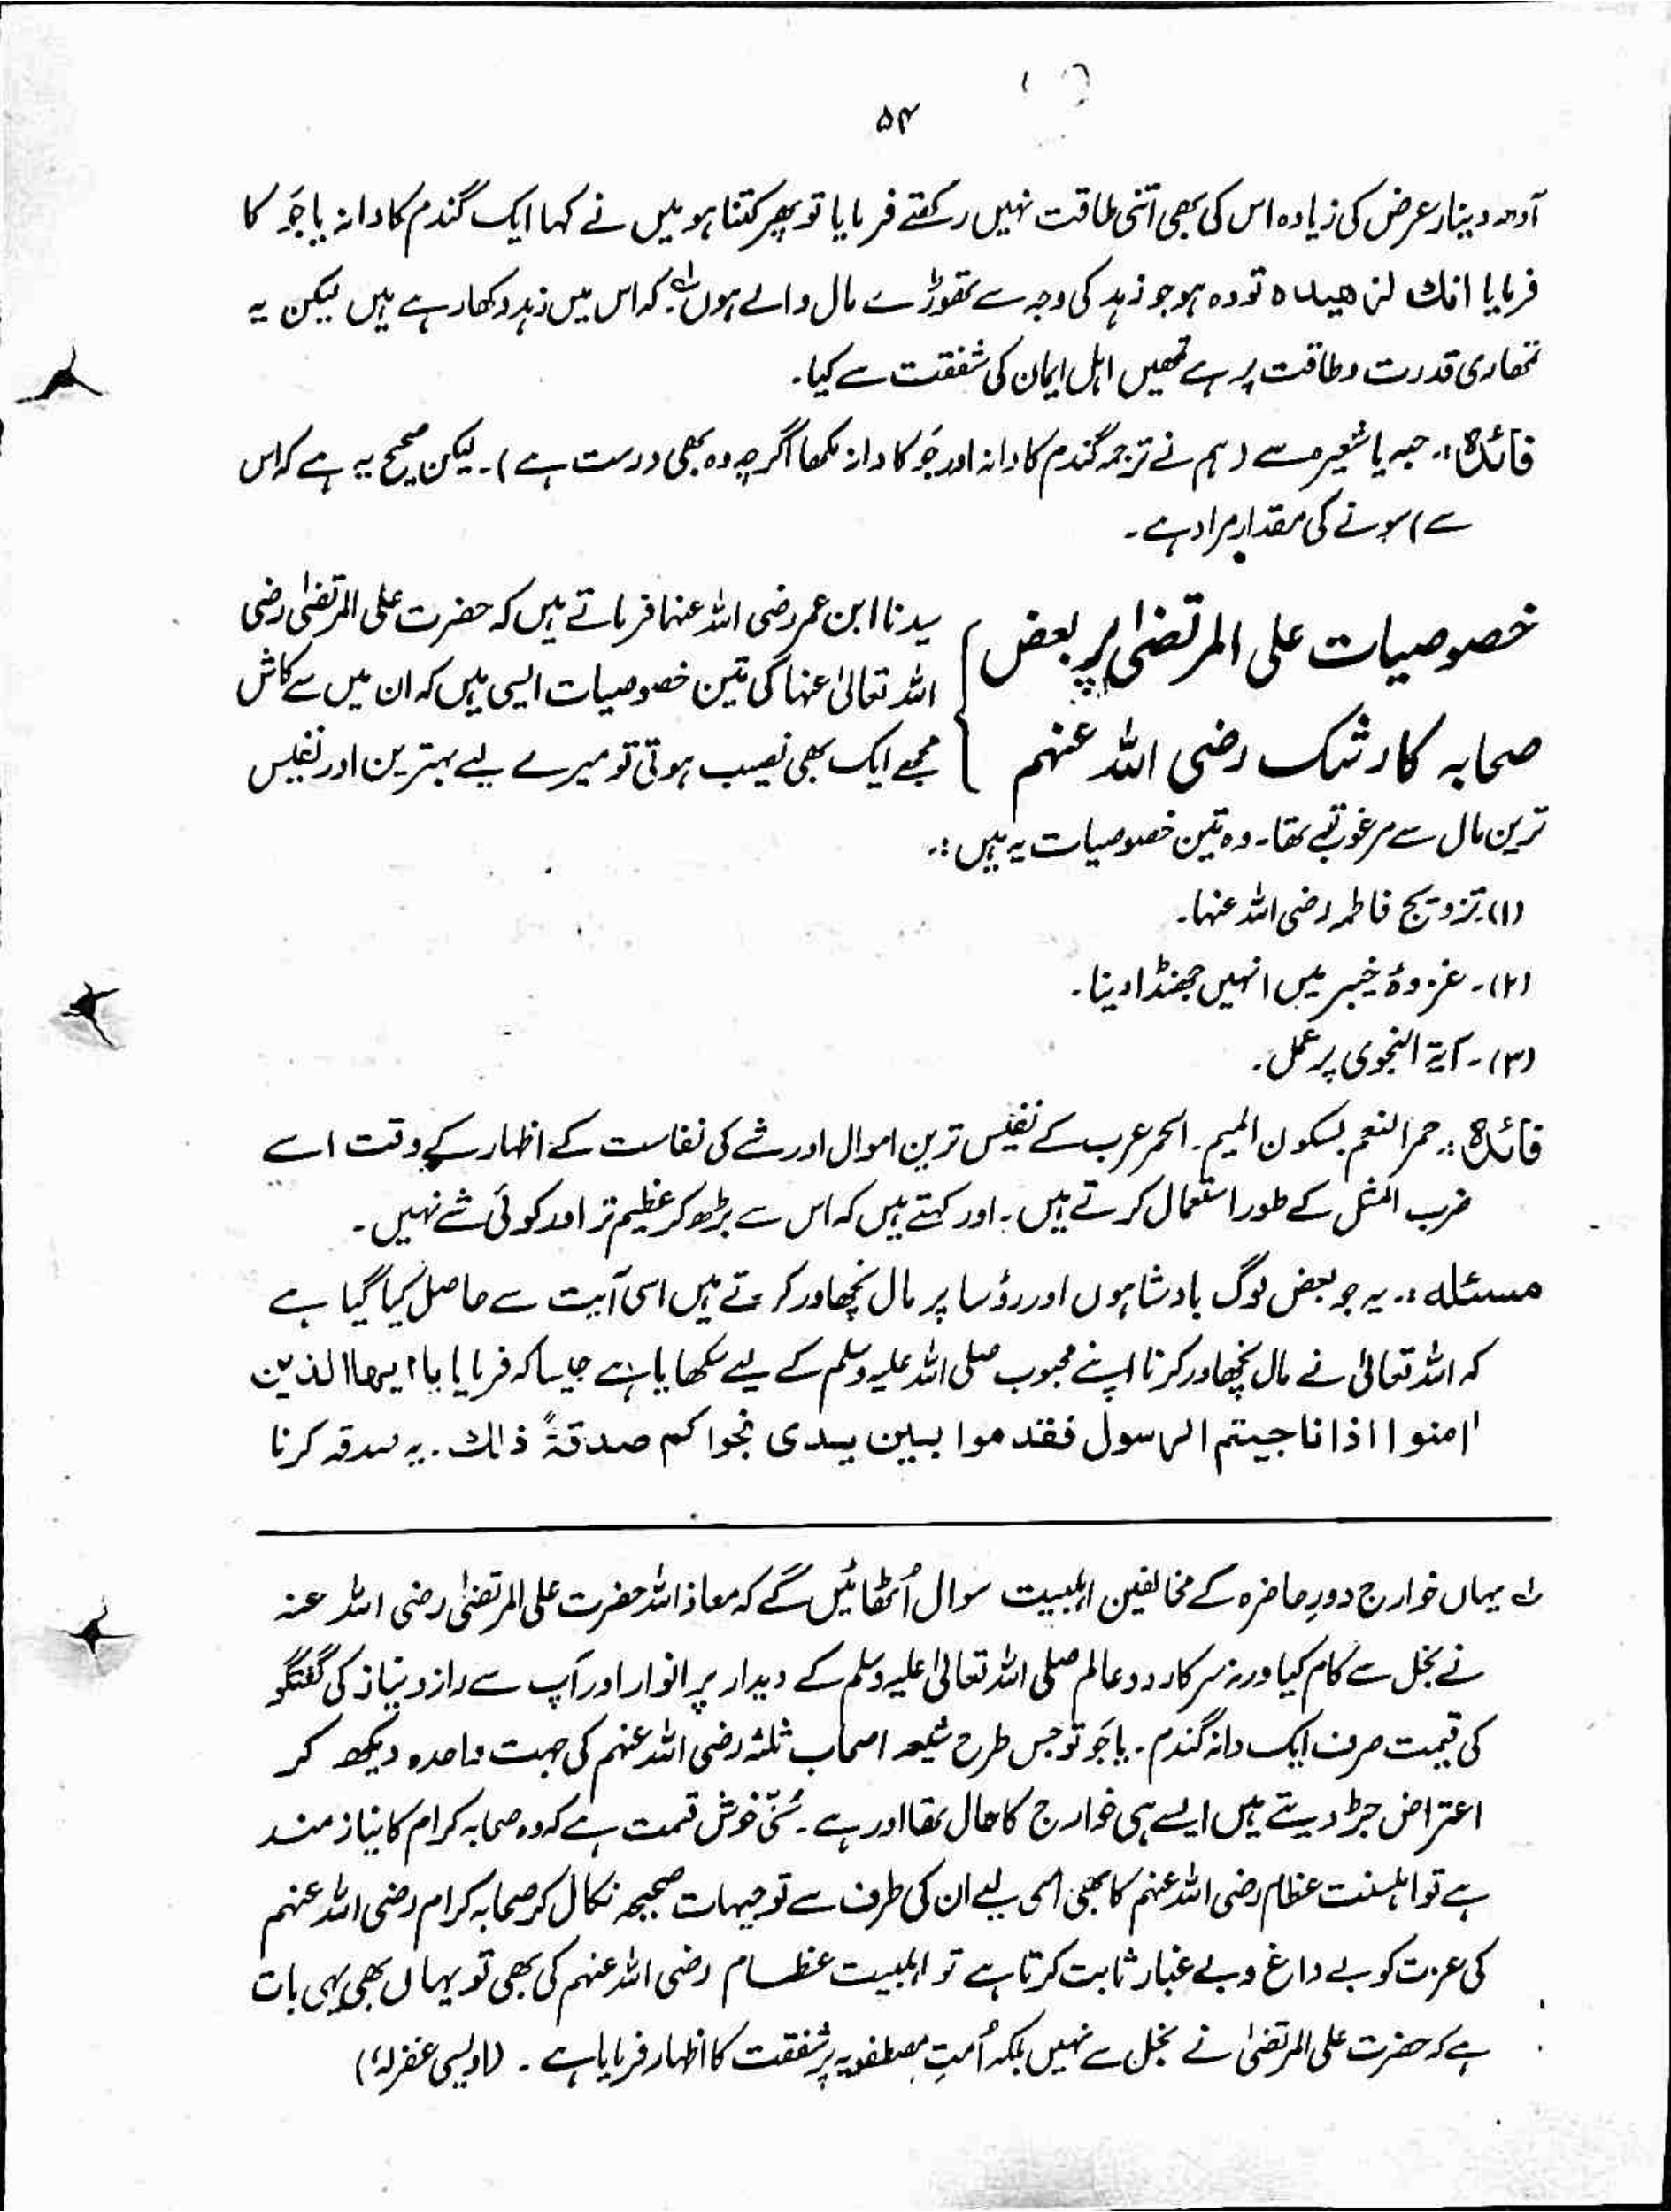 ۵۴
آدھ دینار عرض کی زیادہ اس کی بھی اتنی طاقت نہیں رکھتے فرمایا تو پھر کتنا ہو میں نے کہا ایک گندم کا دانہ یا جَو کا
فرمایا انك لزهيد تو وہ ہو جو زہد کی وجہ سے تھوڑے مال والے ہوں ؎ کہ اس میں زہد دکھا رہے ہیں لیکن یہ
تمھاری قدرت و طاقت پر ہے تمھیں اہل ایمان کی شفقت سے کیا۔
فائدہ:۔ حبہ یا شعیرہ سے (ہم نے ترجمہ گندم کا دانہ اور جَو کا دانہ لکھا اگرچہ وہ بھی درست ہے)۔ لیکن صحیح یہ ہے کہ اس
سے) سونے کی مقدار مراد ہے۔
خصوصیات علی المرتضیٰ پر بعض
صحابہ کا رشک رضی اللہ عنہم
سیدنا ابن عمر رضی اللہ عنہما فرماتے ہیں کہ حضرت علی المرتضیٰ رضی
اللہ تعالیٰ عنہا کی تین خصوصیات ایسی ہیں کہ ان میں سے کاش
مجھے ایک بھی نصیب ہوتی تو میرے لیے بہترین اور نفیس
ترین مال سے مرغوب تھا۔ وہ تین خصوصیات یہ ہیں:۔
(۱)۔ تزویج فاطمہ رضی اللہ عنہا۔
(۲)۔ غزوۂ خیبر میں انہیں جھنڈا دینا۔
(۳)۔ آیۃ النجوی پر عمل۔
فائدہ:۔ حمر النعم بسکون المیم۔ الحمر عرب کے نفیس ترین اموال اور شے کی نفاست کے اظہار کے وقت اسے
ضرب المثل کے طور استعمال کرتے ہیں۔ اور کہتے ہیں کہ اس سے بڑھ کر عظیم تر اور کوئی شے نہیں۔
مسئلہ:۔ یہ جو بعض لوگ بادشاہوں اور رؤسا پر مال نچھاور کرتے ہیں اسی آیت سے حاصل کیا گیا ہے
کہ اللہ تعالیٰ نے مال نچھاور کرنا اپنے محبوب صلی اللہ علیہ وسلم کے لیے سکھایا ہے جیسا کہ فرمایا یا ایھا الذین
امنوا اذا ناجیتم الرسول فقدموا بین یدی نجواکم صدقۃً ذالك۔ یہ صدقہ کرنا
؎ یہاں خوارج دورِ حاضرہ کے مخالفین اہلبیت سوال اُٹھائیں گے کہ معاذ اللہ حضرت علی المرتضیٰ رضی اللہ عنہ
نے بخل سے کام کیا ورنہ سرکار دو عالم صلی اللہ تعالیٰ علیہ وسلم کے دیدار پر انوار اور آپ سے راز و نیاز کی گفتگو
کی قیمت صرف ایک دانہ گندم۔ یا جَو تو جس طرح شیعہ اصحاب ثلثہ رضی اللہ عنہم کی جہت واحدہ دیکھ کر
اعتراض جڑ دیتے ہیں ایسے ہی خوارج کا حال تھا اور ہے۔ سُنّی خوش قسمت ہے کہ وہ صحابہ کرام کا نیاز مند
ہے تو اہلسنت عظام رضی اللہ عنہم کا بھی اسی لیے ان کی طرف سے توجیہات صحیحہ نکال کر صحابہ کرام رضی اللہ عنہم
کی عزت کو بے داغ و بے غبار ثابت کرتا ہے تو اہلبیت عظام رضی اللہ عنہم کی بھی تو یہاں بھی یہی بات
ہے کہ حضرت علی المرتضیٰ نے بخل سے نہیں بلکہ اُمتِ مصطفویہ پر شفقت کا اظہار فرمایا ہے۔ (اویسی غفرلہٗ)